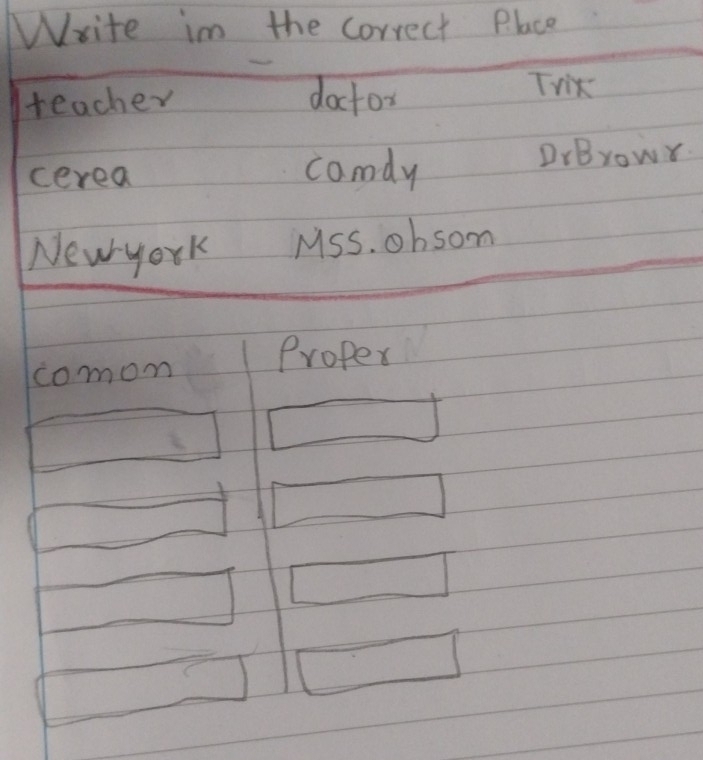 Write im the correct Place
teacher doctor Trix
cerea camdy DrBrowr
Newyork MSS.obsom
comon Proper